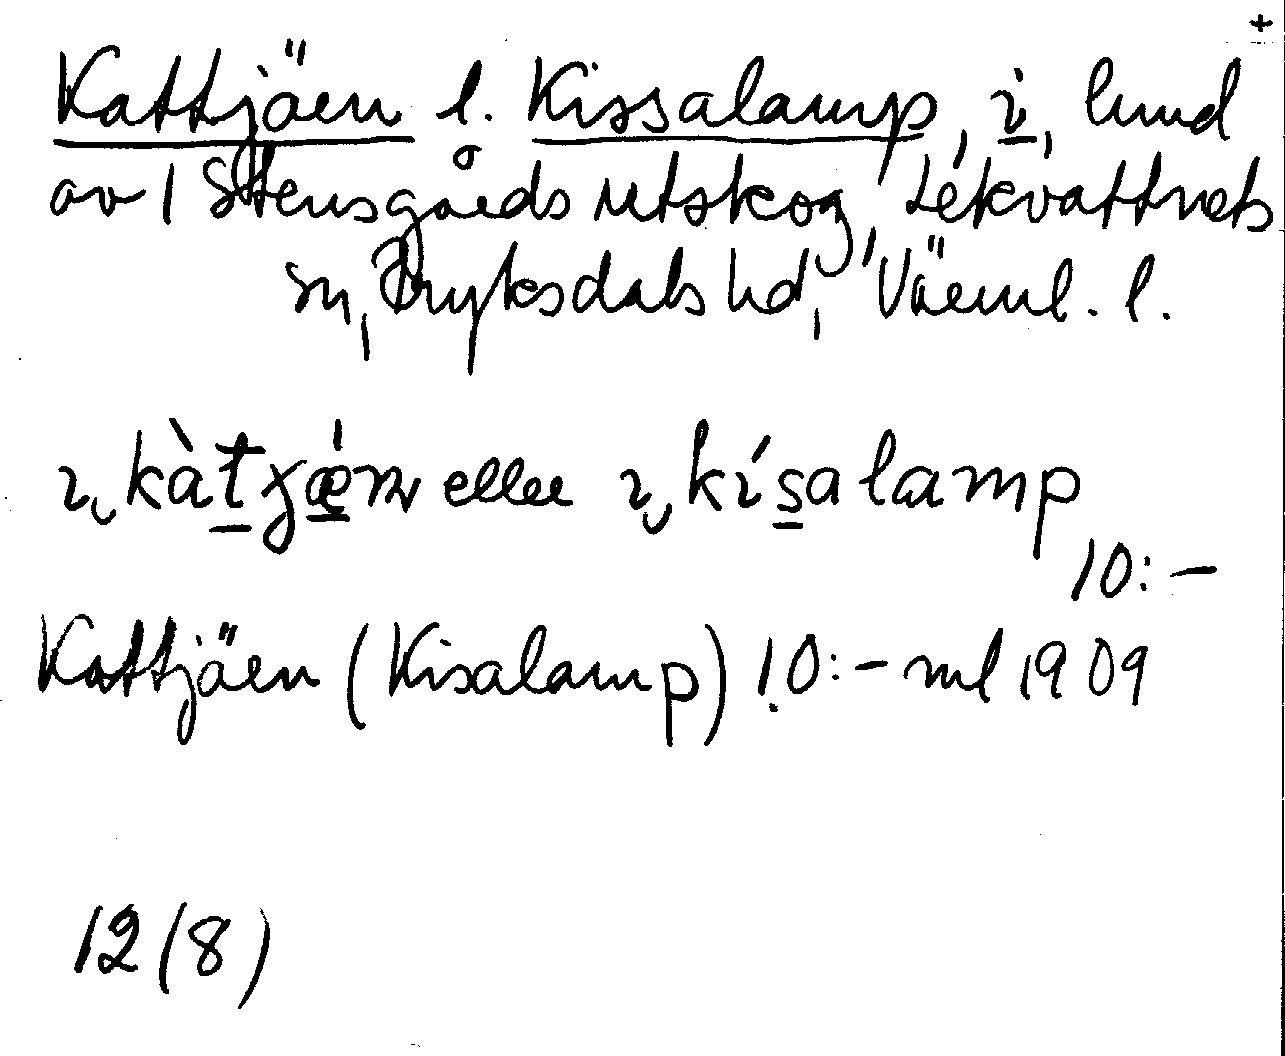 +
Kattjärn l. Kissalamp, i, lund
av 1 Stensgårds utskog, Lekvattnets
sn, Fryksdals hd, Värml. l.
ɩ, kàt̠jǽ̠n eller ɩ, kís̠alamp
10:-
Kattjärn (Kisalamp) 10:- ml 1909
12 (8)